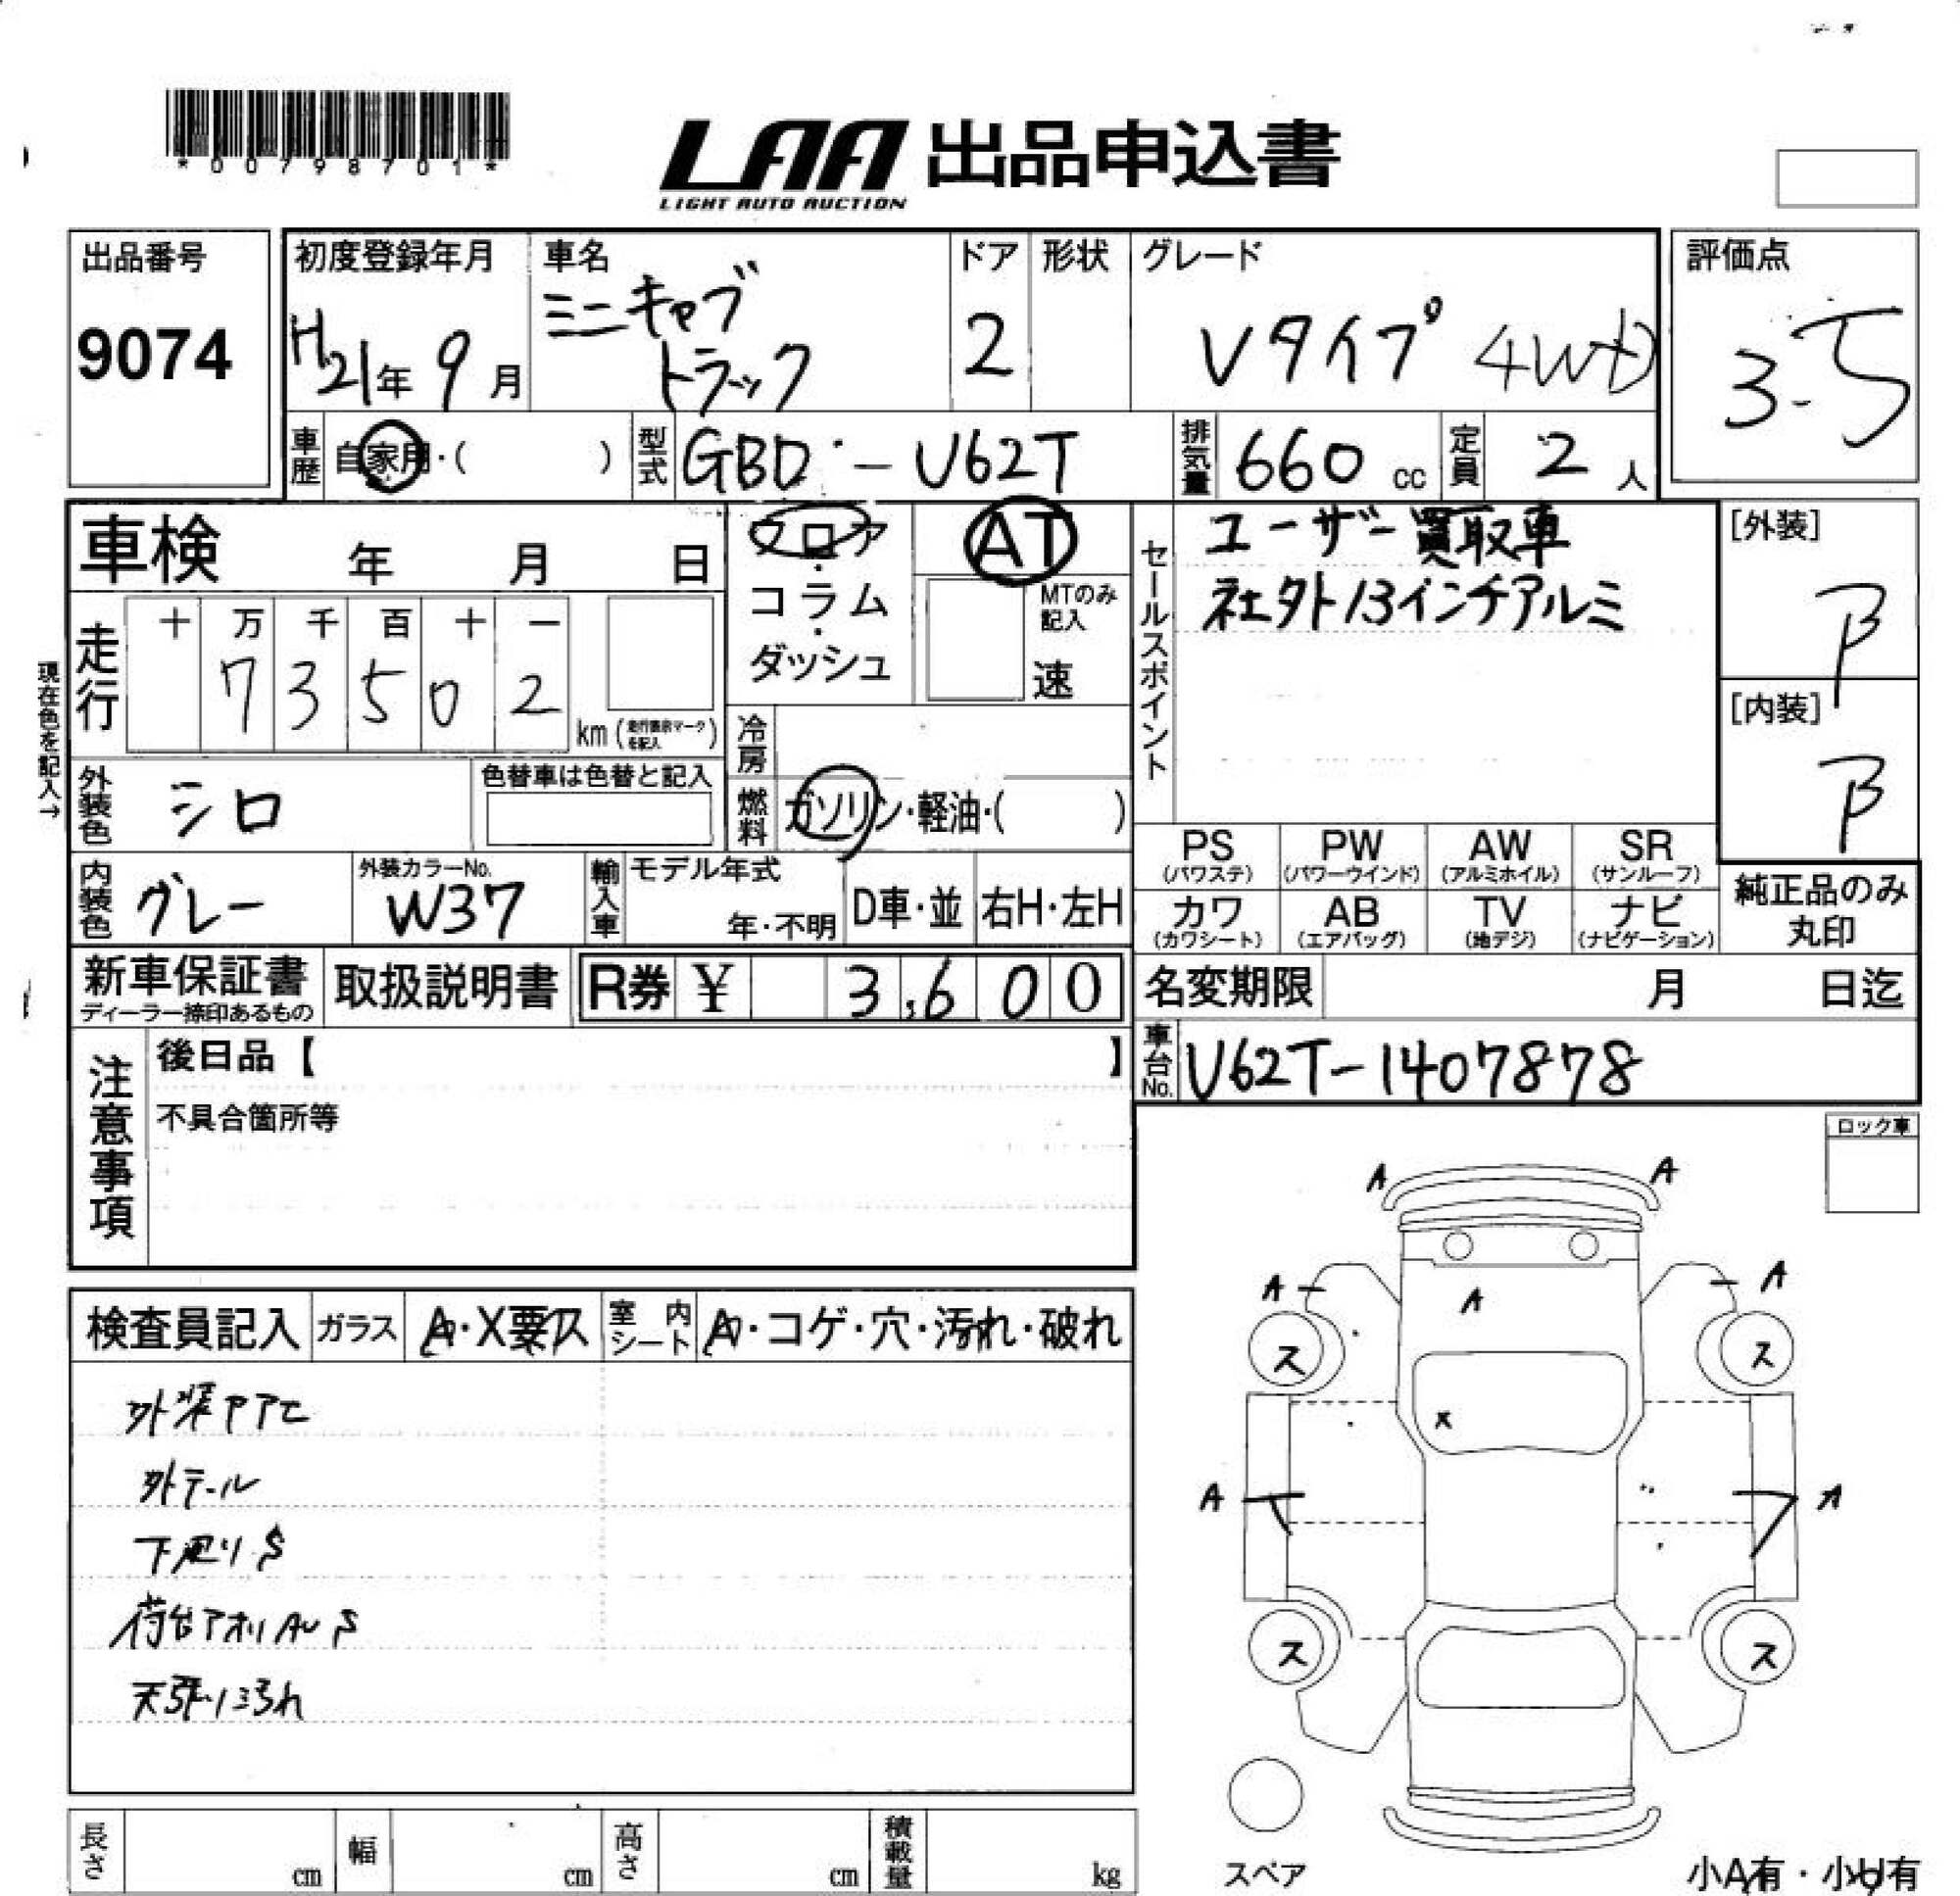 *00798701*
LAA 出品申込書
LIGHT AUTO AUCTION
出品番号
9074
初度登録年月
H21年 9月
車名
ミニキャブ
トラック
ドア
2
形状
グレード
Vタイプ 4WD
評価点
3.5
車歴
自家用・( )
型式
GBD-U62T
排気量
660 cc
定員
2 人
車検 年 月 日
フロア
・
コラム
・
ダッシュ
AT
MTのみ
記入
速
セールスポイント
ユーザー買取車
社外13インチアルミ
[外装]
B
[内装]
B
現在色を記入→
走行
十 万 千 百 十 一
7 3 5 0 2
km (走行距離マークを記入)
冷房
燃料
ガソリン・軽油・( )
外装色
シロ
色替車は色替と記入
内装色
グレー
外装カラーNo.
W37
輸入車
モデル年式
年・不明
D車・並
右H・左H
PS
(パワステ)
PW
(パワーウインド)
AW
(アルミホイル)
SR
(サンルーフ)
カワ
(カワシート)
AB
(エアバッグ)
TV
(地デジ)
ナビ
(ナビゲーション)
純正品のみ
丸印
新車保証書
ディーラー捺印あるもの
取扱説明書
R券 ¥ 3,600
名変期限 月 日迄
車台No.
U62T-1407878
注意事項
後日品【 】
不具合箇所等
ロック車
検査員記入
ガラス
A・X要ス
室内シート
A・コゲ・穴・汚れ・破れ
外テール
下廻りS
荷台アオリAUS
天張り汚れ
A A
A A
A
ス ス
X
A A
ス ス
スペア
長さ cm
幅 cm
高さ cm
積載量 kg
小A有・小U有